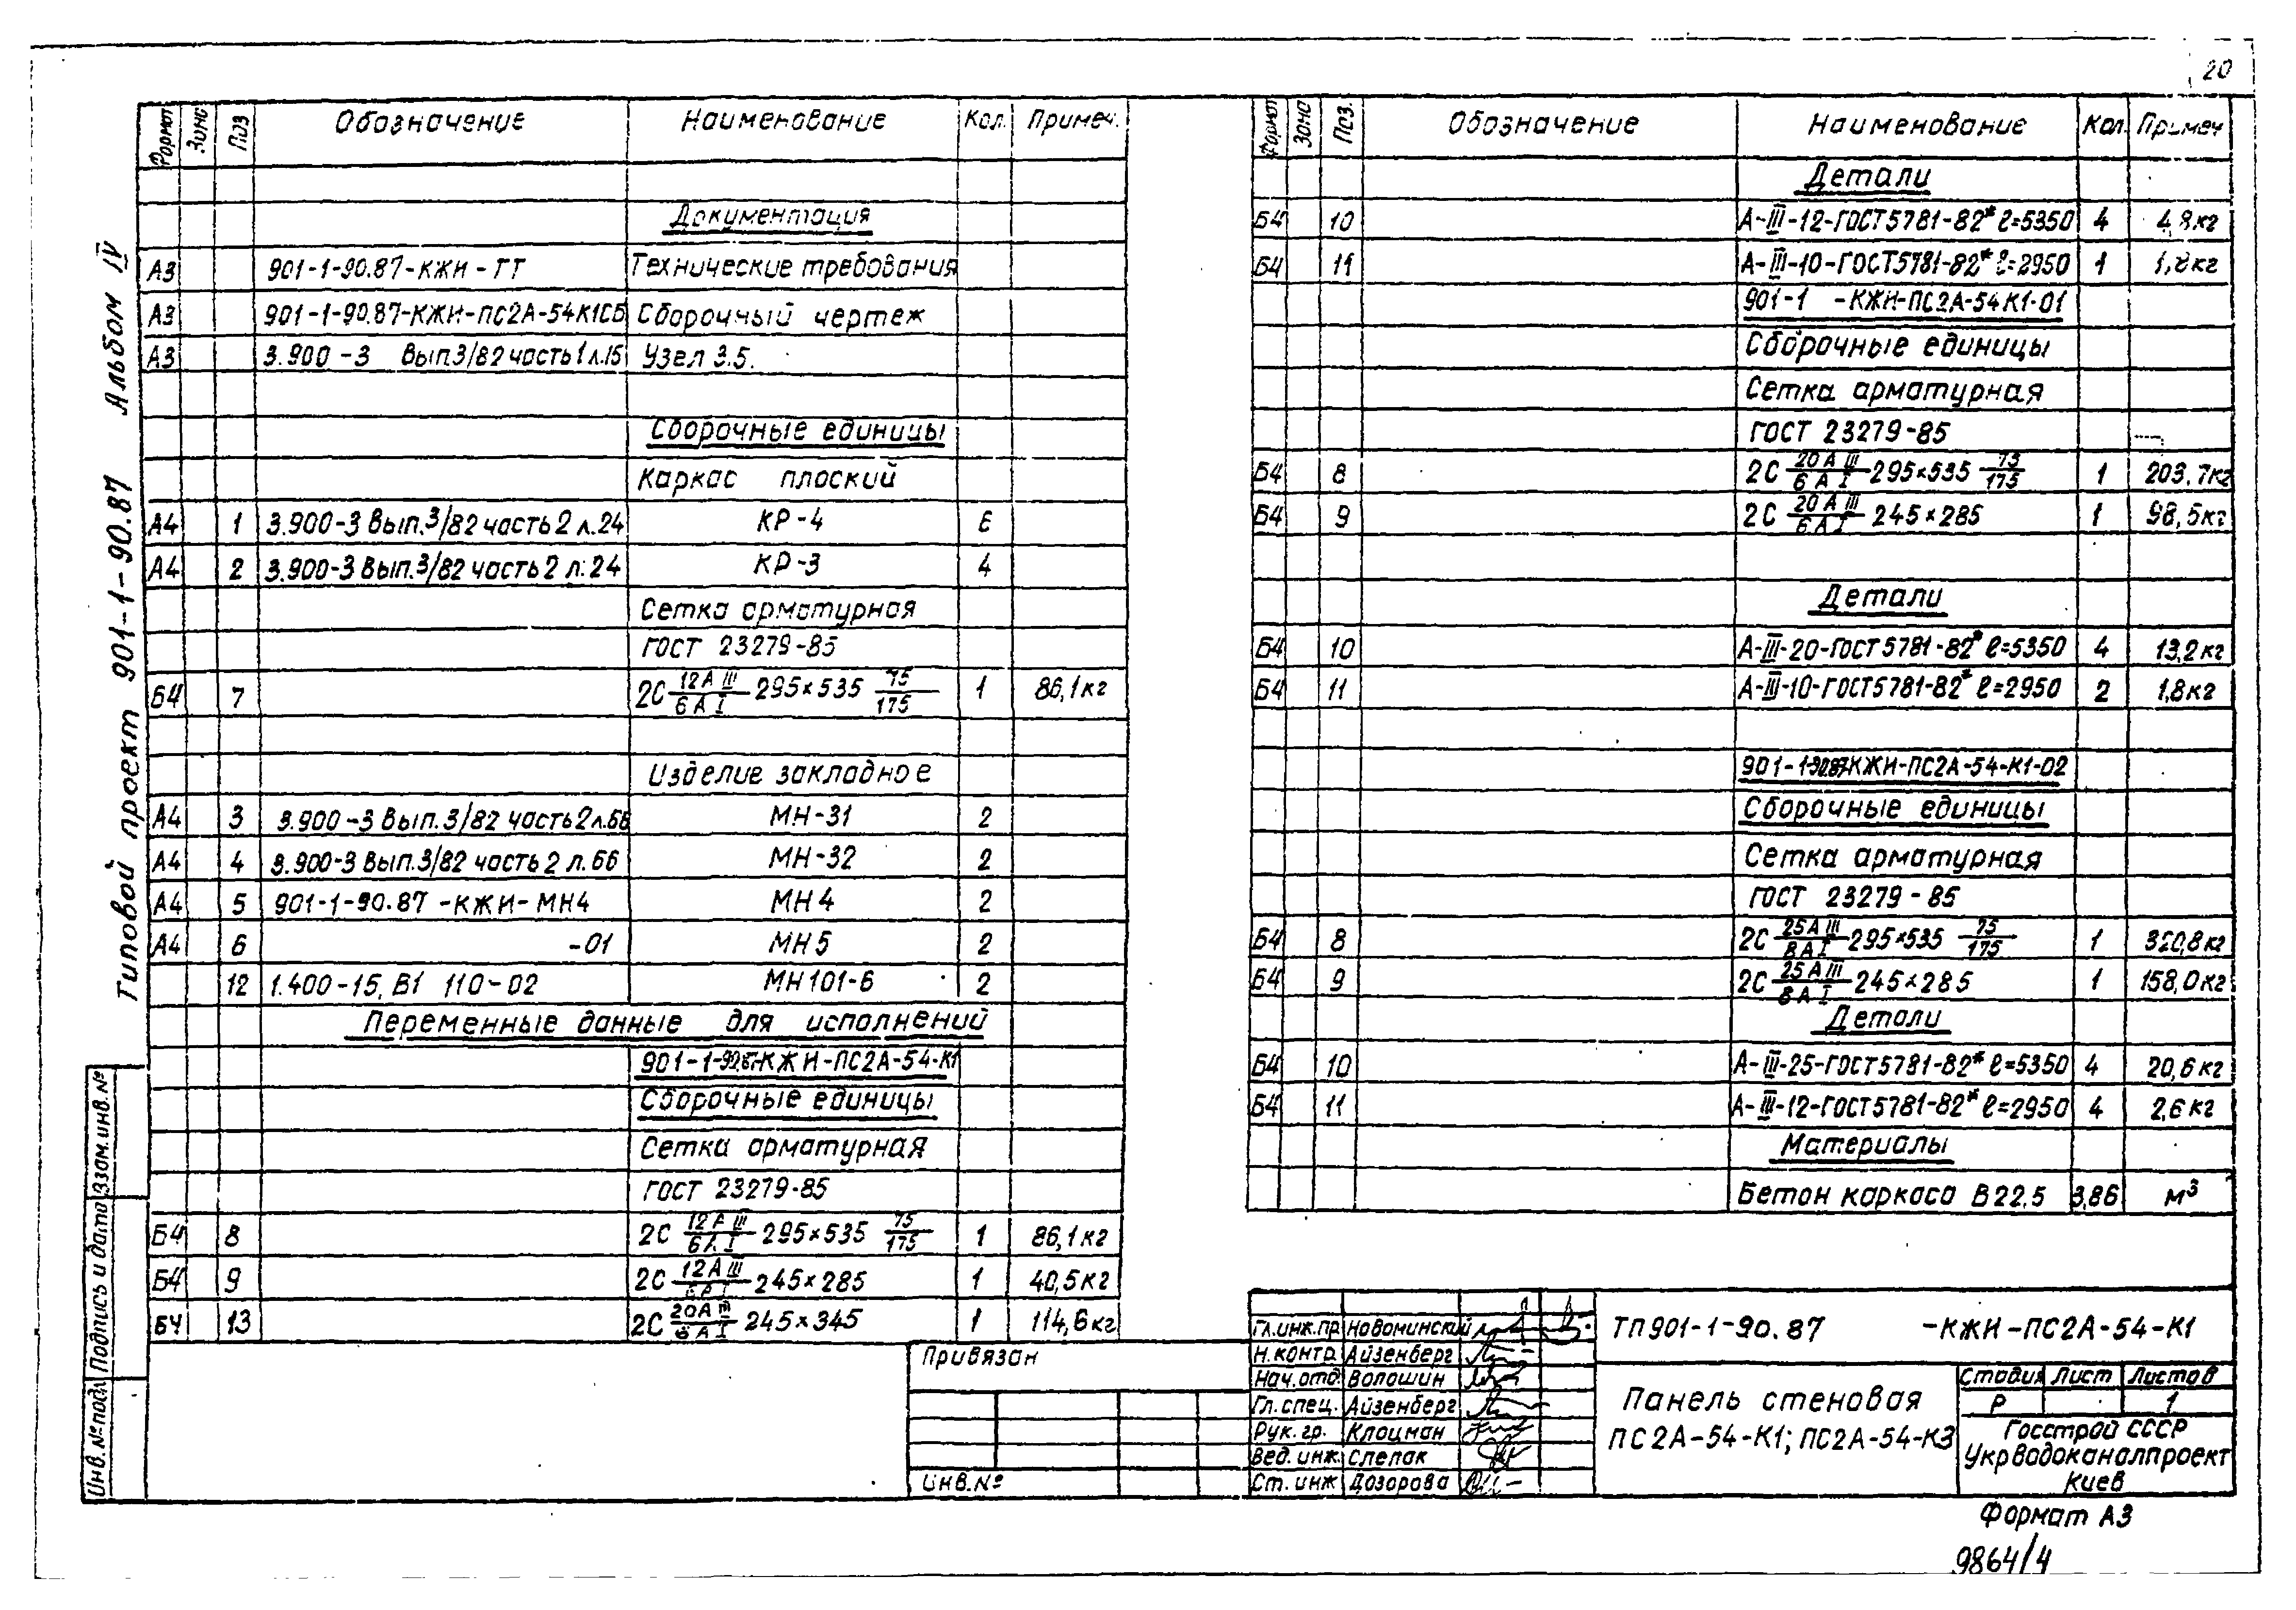 20
Типовой проект 901-1-90.87 Альбом IV
Формат Зона Поз Обозначение Наименование Кол. Примеч.
Документация
А3 901-1-90.87-КЖИ-ТТ Технические требования
А3 901-1-90.87-КЖИ-ПС2А-54К1СБ Сборочный чертеж
А3 3.900-3 Вып3/82 часть 1 л.15 Узел 3.5.
Сборочные единицы
Каркас плоский
А4 1 3.900-3 Вып.3/82 часть 2 л.24 КР-4 6
А4 2 3.900-3 Вып.3/82 часть 2 л.24 КР-3 4
Сетка арматурная
ГОСТ 23279-85
Б4 7 2С 12АIII/6АI 295×535 75/175 1 86,1кг
Изделие закладное
А4 3 3.900-3 Вып.3/82 часть 2 л.66 МН-31 2
А4 4 3.900-3 Вып.3/82 часть 2 л.66 МН-32 2
А4 5 901-1-90.87-КЖИ-МН4 МН4 2
А4 6 -01 МН5 2
12 1.400-15, В1 110-02 МН101-6 2
Переменные данные для исполнений
901-1-90.87-КЖИ-ПС2А-54-К1
Сборочные единицы
Сетка арматурная
ГОСТ 23279-85
Б4 8 2С 12АIII/6АI 295×535 75/175 1 86,1кг
Б4 9 2С 12АIII/6АI 245×285 1 40,5кг
Б4 13 2С 20АIII/6АI 245×345 1 114,6кг
Формат Зона Поз. Обозначение Наименование Кол. Примеч
Детали
Б4 10 А-III-12-ГОСТ5781-82* ℓ=5350 4 4,8кг
Б4 11 А-III-10-ГОСТ5781-82* ℓ=2950 1 1,8кг
901-1 -КЖИ-ПС2А-54К1-01
Сборочные единицы
Сетка арматурная
ГОСТ 23279-85
Б4 8 2С 20АIII/6АI 295×535 75/175 1 203,7кг
Б4 9 2С 20АIII/6АI 245×285 1 98,5кг
Детали
Б4 10 А-III-20-ГОСТ5781-82* ℓ=5350 4 13,2кг
Б4 11 А-III-10-ГОСТ5781-82* ℓ=2950 2 1,8кг
901-1-90.87-КЖИ-ПС2А-54-К1-02
Сборочные единицы
Сетка арматурная
ГОСТ 23279-85
Б4 8 2С 25АIII/8АI 295×535 75/175 1 320,8кг
Б4 9 2С 25АIII/8АI 245×285 1 158,0кг
Детали
Б4 10 А-III-25-ГОСТ5781-82* ℓ=5350 4 20,6кг
Б4 11 А-III-12-ГОСТ5781-82* ℓ=2950 4 2,6кг
Материалы
Бетон каркаса В22,5 3,86 м³
Инв.№подл Подпись и дата Взам.инв.№
Привязан
Инв.№
Гл.инж.пр. Новоминский
Н.контр. Айзенберг
Нач.отд. Волошин
Гл.спец. Айзенберг
Рук.гр. Клоцман
Вед.инж. Слепак
Ст.инж Дозорова
ТП901-1-90.87 -КЖИ-ПС2А-54-К1
Панель стеновая
ПС2А-54-К1; ПС2А-54-К3
Стадия Лист Листов
Р 1
Госстрой СССР
Укрводоканалпроект
Киев
Формат А3
9864/4